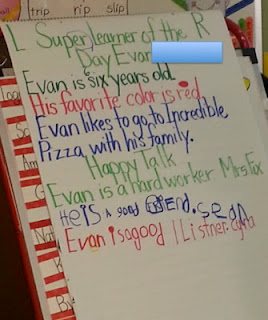 trip nip slip
L Super Learner of the R
Day Evan
Evan is six years old.
His favorite color is red.
Evan likes to go to Incredible
Pizza with his family.
Happy Talk
Evan is a hard worker Mrs Fox
He is a good friend. Sean
Evan is a good Listner.